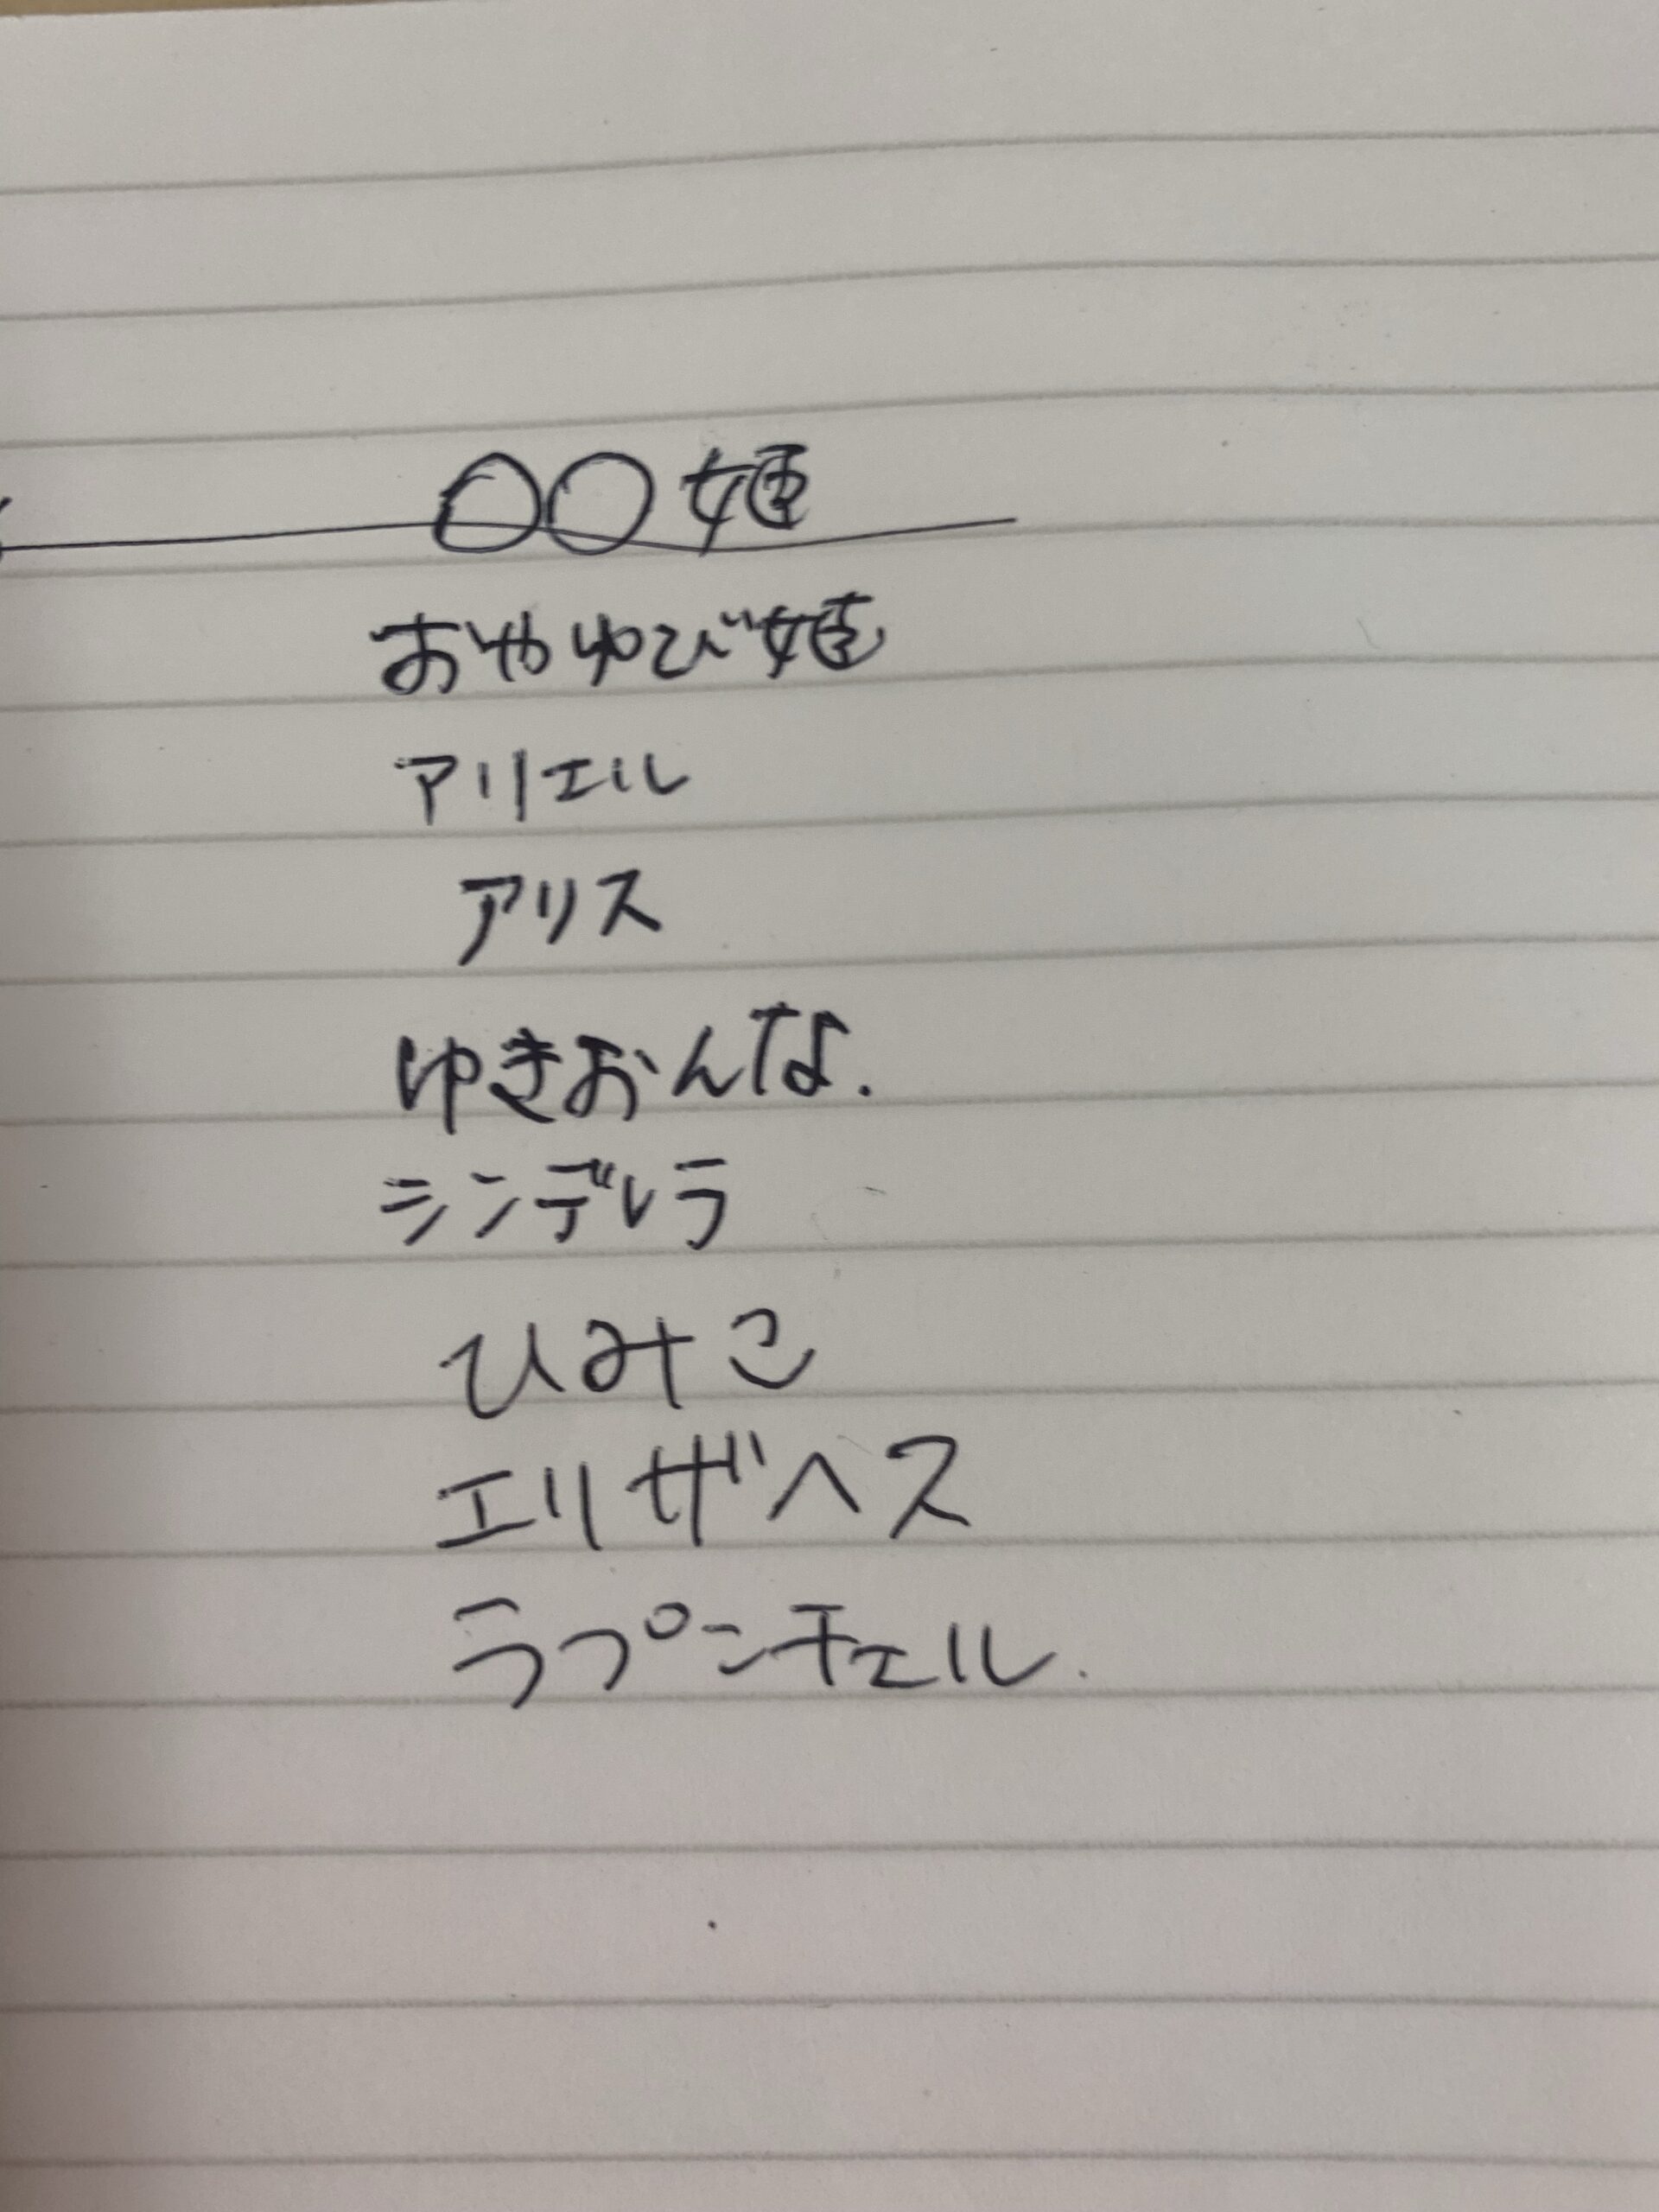 〇〇姫
おやゆび姫
アリエル
アリス
ゆきおんな.
シンデレラ
ひみこ
エリザヘス
ラプンチェル.